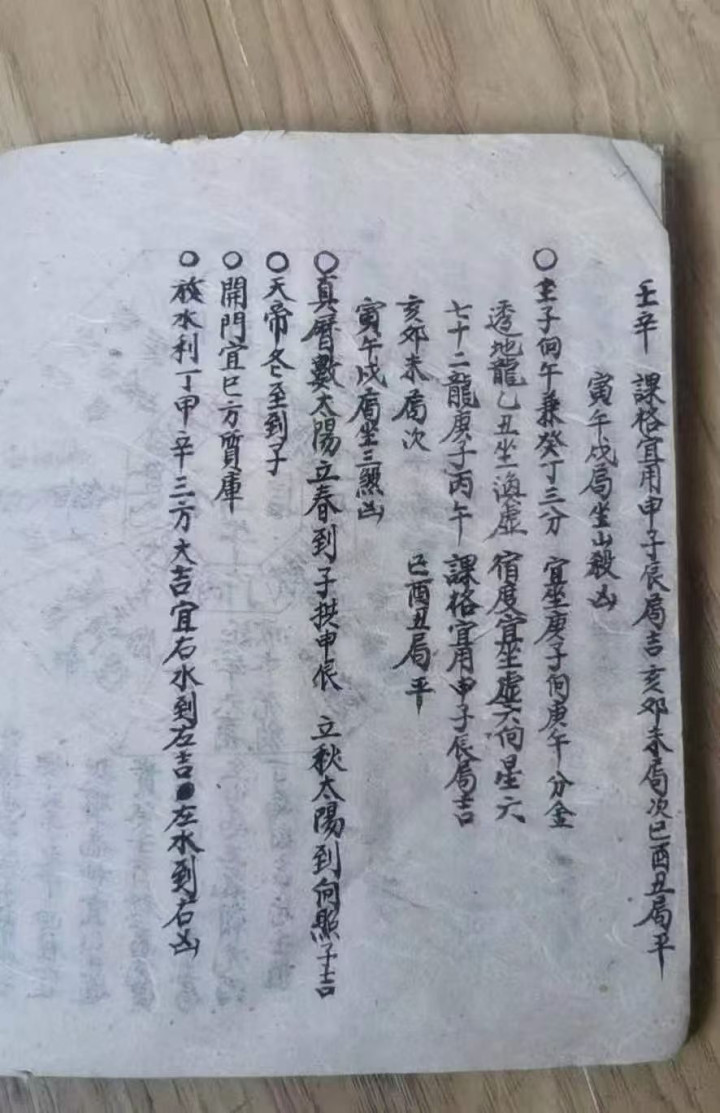 壬辛　課格宜用申子辰局吉亥卯未局次巳酉丑局平
寅午戌局坐山殺凶
○坐子向午兼癸丁三分　宜坐庚子向庚午分金
透地龍乙丑坐海虛　宿度宜坐虛六向星六
七十二龍庚子丙午　課格宜用申子辰局吉
亥卯未局次　巳酉丑局平
寅午戌局坐三煞凶
○真曆數太陽立春到子拱申辰　立秋太陽到向照子吉
○天帝冬至到子
○開門宜巳方質庫
○放水利丁甲辛三方大吉宜右水到左吉左水到右凶